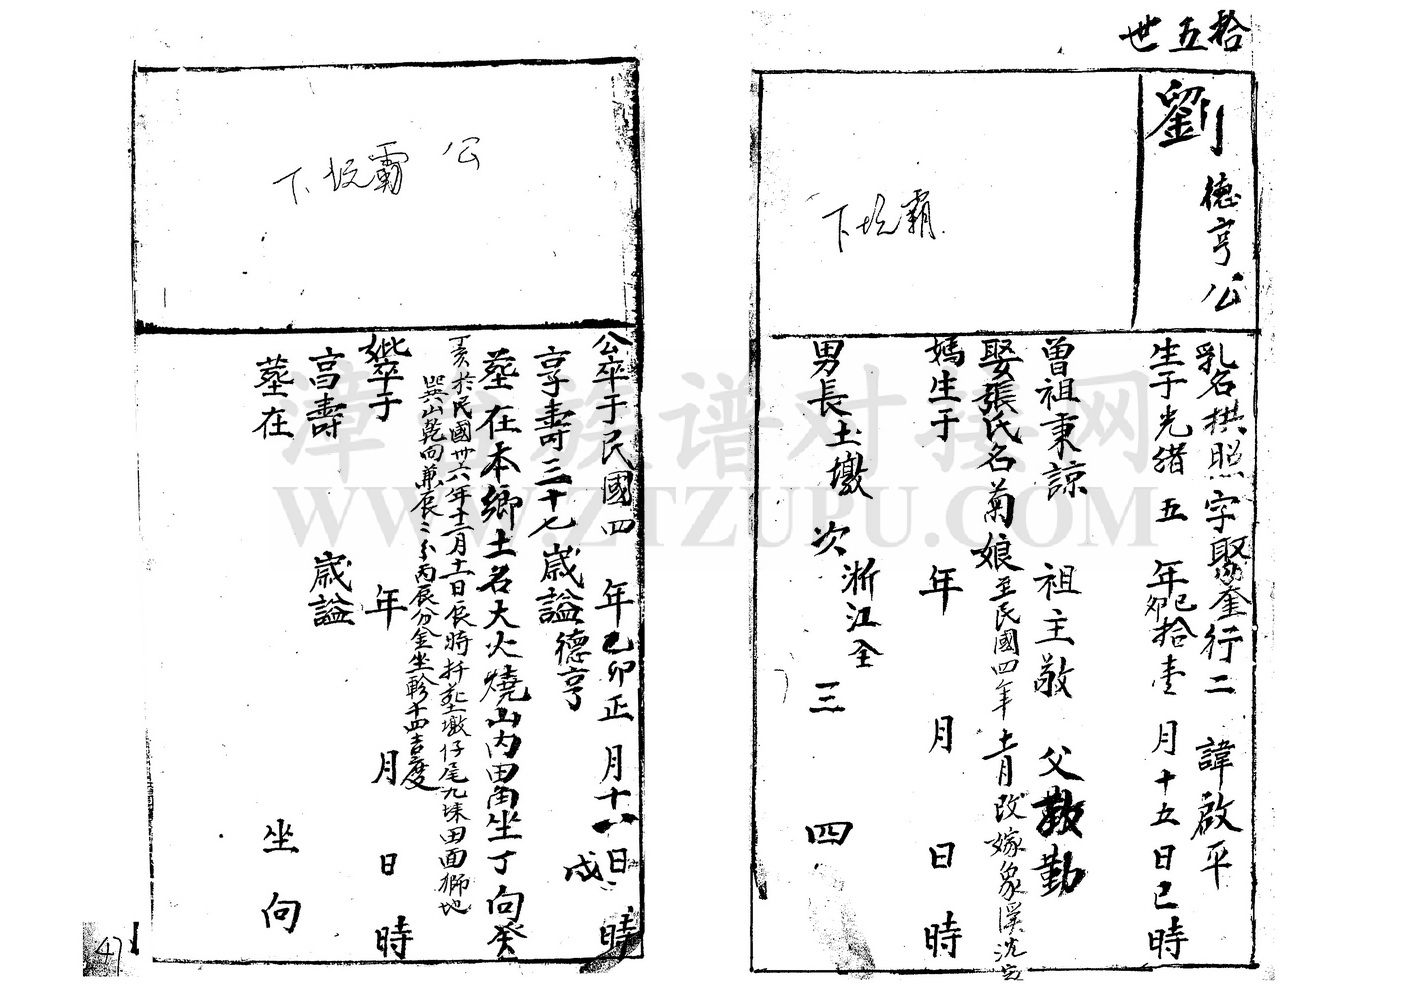 拾五世
劉
德亨公
下坑霸
乳名拱照字聚奎行二 諱啟平
生于光緒五年己卯拾壹月十五日巳時
曾祖秉諒 祖主敬 父敬勤
娶張氏名菊娘至民國四年十一月改嫁象溪沈家
媽生于 年 月 日 時
男長土墩 次浙江全 三 四
公
下坟霸
公卒于民國四年乙卯正月十八日戌時
享壽三十七歲謚德亨
葬在本鄉土名大火燒山內田角坐丁向癸
丁亥於民國卅六年十二月十一日辰時扦葬墩仔尾九垛田面獅地
巽山乾向兼辰三分丙辰分金坐軫十四吉度
妣卒于 年 月 日 時
享壽 歲謚
葬在 坐 向
47
漳台族谱对接网
WWW.ZTZUPU.COM